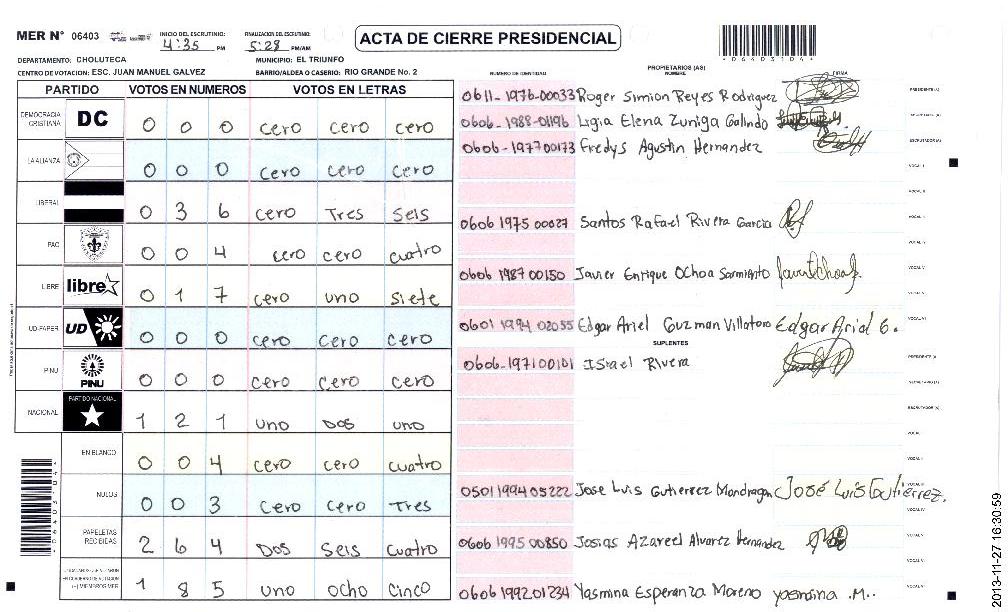 MER Nº 06403 INICIO DEL ESCRUTINIO: 4:35 PM FINALIZACION DEL ESCRUTINIO: 5:28 PM/AM ACTA DE CIERRE PRESIDENCIAL 06403104
DEPARTAMENTO: CHOLUTECA MUNICIPIO: EL TRIUNFO
CENTRO DE VOTACION: ESC. JUAN MANUEL GALVEZ BARRIO/ALDEA O CASERIO: RIO GRANDE No. 2
PARTIDO VOTOS EN NUMEROS VOTOS EN LETRAS
DEMOCRACIA CRISTIANA DC 0 0 0 cero cero cero
LA ALIANZA 0 0 0 cero cero cero
LIBERAL 0 3 6 cero Tres Seis
PAC 0 0 4 cero cero cuatro
LIBRE libre 0 1 7 cero uno siete
UD-FAPER UD 0 0 0 cero cero cero
PINU PINU 0 0 0 cero cero cero
NACIONAL PARTIDO NACIONAL 1 2 1 uno Dos uno
EN BLANCO 0 0 4 cero cero cuatro
NULOS 0 0 3 cero cero Tres
PAPELETAS RECIBIDAS 2 6 4 Dos Seis cuatro
MIEMBROS MER 1 8 5 uno ocho cinco
NUMERO DE IDENTIDAD PROPIETARIOS (AS) NOMBRE FIRMA
0611-1976-00033 Roger Simion Reyes Rodriguez PRESIDENTE (A)
0606-1988-01196 Ligia Elena Zuniga Galindo SECRETARIO (A)
0606-197700173 Fredys Agustin Hernandez ESCRUTADOR (A)
VOCAL I
VOCAL II
0606 1975 00027 Santos Rafael Rivera Garcia VOCAL III
VOCAL IV
0606 1987 00150 Javier Enrique Ochoa Sarmiento VOCAL V
0601 1994 02055 Edgar Ariel Guzman Villatoro Edgar Ariel G.
SUPLENTES
0606-1971 00101 Israel Rivera PRESIDENTE (A)
SECRETARIO (A)
ESCRUTADOR (A)
VOCAL I
VOCAL II
0501 1994 05222 Jose Luis Gutierrez Mondragon José Luis Gutiérrez.
0606 1995 00850 Josias Azareel Alvarez Hernandez
0606 1992 01234 Yasmina Esperanza Moreno yasmina .M..
2013-11-27 16:30:59